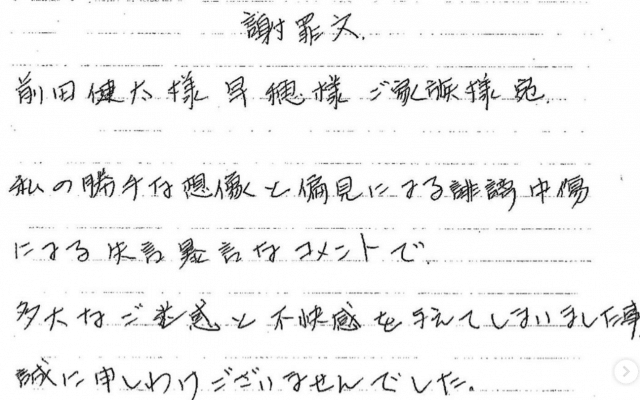 謝罪文.
前田健太様 早穂様 ご家族様 宛.
私の勝手な想像と偏見による誹謗中傷
による失言暴言なコメントで.
多大なご迷惑と不快感を与えてしまいました事
誠に申しわけございませんでした。